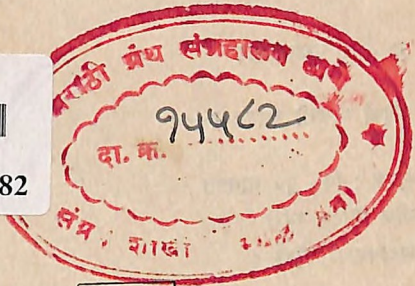 मराठी ग्रंथ संग्रहालय ठाणे
दा. क्र. १५५८२
82
शाखा